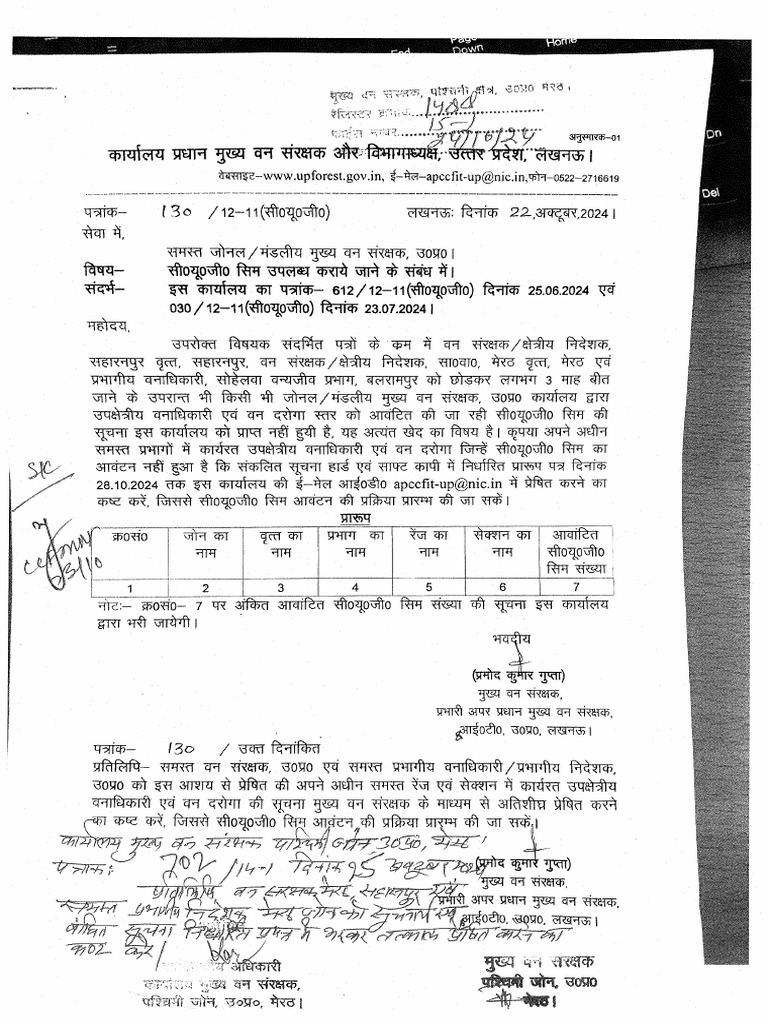 Page
End Down Home
मुख्य वन संरक्षक, पश्चिमी क्षेत्र, उ०प्र० मेरठ।
रजिस्टर क्रमांक
15-1
फाईल नम्बर
अनुस्मारक-01
Dn
कार्यालय प्रधान मुख्य वन संरक्षक और विभागाध्यक्ष, उत्तर प्रदेश, लखनऊ।
वेबसाइट-www.upforest.gov.in, ई-मेल-apccfit-up@nic.in,फोन-0522-2716619
Del
पत्रांक- 130 /12-11(सी0यू0जी0) लखनऊः दिनांक 22,अक्टूबर,2024।
सेवा में,
समस्त जोनल/मंडलीय मुख्य वन संरक्षक, उ0प्र0।
विषय- सी0यू0जी0 सिम उपलब्ध कराये जाने के संबंध में।
संदर्भ- इस कार्यालय का पत्रांक- 612/12-11(सी0यू0जी0) दिनांक 25.06.2024 एवं
030/12-11(सी0यू0जी0) दिनांक 23.07.2024।
महोदय,
उपरोक्त विषयक संदर्भित पत्रों के क्रम में वन संरक्षक/क्षेत्रीय निदेशक,
सहारनपुर वृत्त, सहारनपुर, वन संरक्षक/क्षेत्रीय निदेशक, सा0वा0, मेरठ वृत्त, मेरठ एवं
प्रभागीय वनाधिकारी, सोहेलवा वन्यजीव प्रभाग, बलरामपुर को छोड़कर लगभग 3 माह बीत
जाने के उपरान्त भी किसी भी जोनल/मंडलीय मुख्य वन संरक्षक, उ0प्र0 कार्यालय द्वारा
उपक्षेत्रीय वनाधिकारी एवं वन दरोगा स्तर को आवंटित की जा रही सी0यू0जी0 सिम की
सूचना इस कार्यालय को प्राप्त नहीं हुयी है, यह अत्यंत खेद का विषय है। कृपया अपने अधीन
समस्त प्रभागों में कार्यरत उपक्षेत्रीय वनाधिकारी एवं वन दरोगा जिन्हें सी0यू0जी0 सिम का
आवंटन नहीं हुआ है कि संकलित सूचना हार्ड एवं साफ्ट कापी में निर्धारित प्रारूप पत्र दिनांक
28.10.2024 तक इस कार्यालय की ई-मेल आई0डी0 apccfit-up@nic.in में प्रेषित करने का
कष्ट करें, जिससे सी0यू0जी0 सिम आवंटन की प्रक्रिया प्रारम्भ की जा सकें।
प्रारूप
क्र0सं0 जोन का नाम वृत्त का नाम प्रभाग का नाम रेंज का नाम सेक्शन का नाम आवांटित सी0यू0जी0 सिम संख्या
1 2 3 4 5 6 7
नोटः- क्र0सं0- 7 पर अंकित आवांटित सी0यू0जी0 सिम संख्या की सूचना इस कार्यालय
द्वारा भरी जायेगी।
भवदीय
(प्रमोद कुमार गुप्ता)
मुख्य वन संरक्षक,
प्रभारी अपर प्रधान मुख्य वन संरक्षक,
आई0टी0, उ0प्र0, लखनऊ।
पत्रांक- 130 / उक्त दिनांकित
प्रतिलिपि- समस्त वन संरक्षक, उ0प्र0 एवं समस्त प्रभागीय वनाधिकारी/प्रभागीय निदेशक,
उ0प्र0 को इस आशय से प्रेषित की अपने अधीन समस्त रेंज एवं सेक्शन में कार्यरत उपक्षेत्रीय
वनाधिकारी एवं वन दरोगा की सूचना मुख्य वन संरक्षक के माध्यम से अतिशीघ्र प्रेषित करने
का कष्ट करें, जिससे सी0यू0जी0 सिम आवंटन की प्रक्रिया प्रारम्भ की जा सकें।
कार्यालय मुख्य वन संरक्षक पश्चिमी जोन, उ0प्र0, मेरठ।
पत्रांक: 702 /14-1 दिनांक 25 अक्टूबर 2024
(प्रमोद कुमार गुप्ता)
मुख्य वन संरक्षक,
प्रतिलिपि वन संरक्षक मेरठ, सहारनपुर एवं
प्रभारी अपर प्रधान मुख्य वन संरक्षक,
समस्त प्रभागीय निदेशक मेरठ जोन को सूचनार्थ एवं
आई0टी0, उ0प्र0, लखनऊ।
वांछित सूचना निर्धारित प्रपत्र में भरकर तत्काल प्रेषित करने का
कष्ट करें।
अधिकारी
कार्यालय मुख्य वन संरक्षक
पश्चिमी जोन, उ०प्र०, मेरठ।
मुख्य वन संरक्षक
पश्चिमी जोन, उ०प्र०
मेरठ।